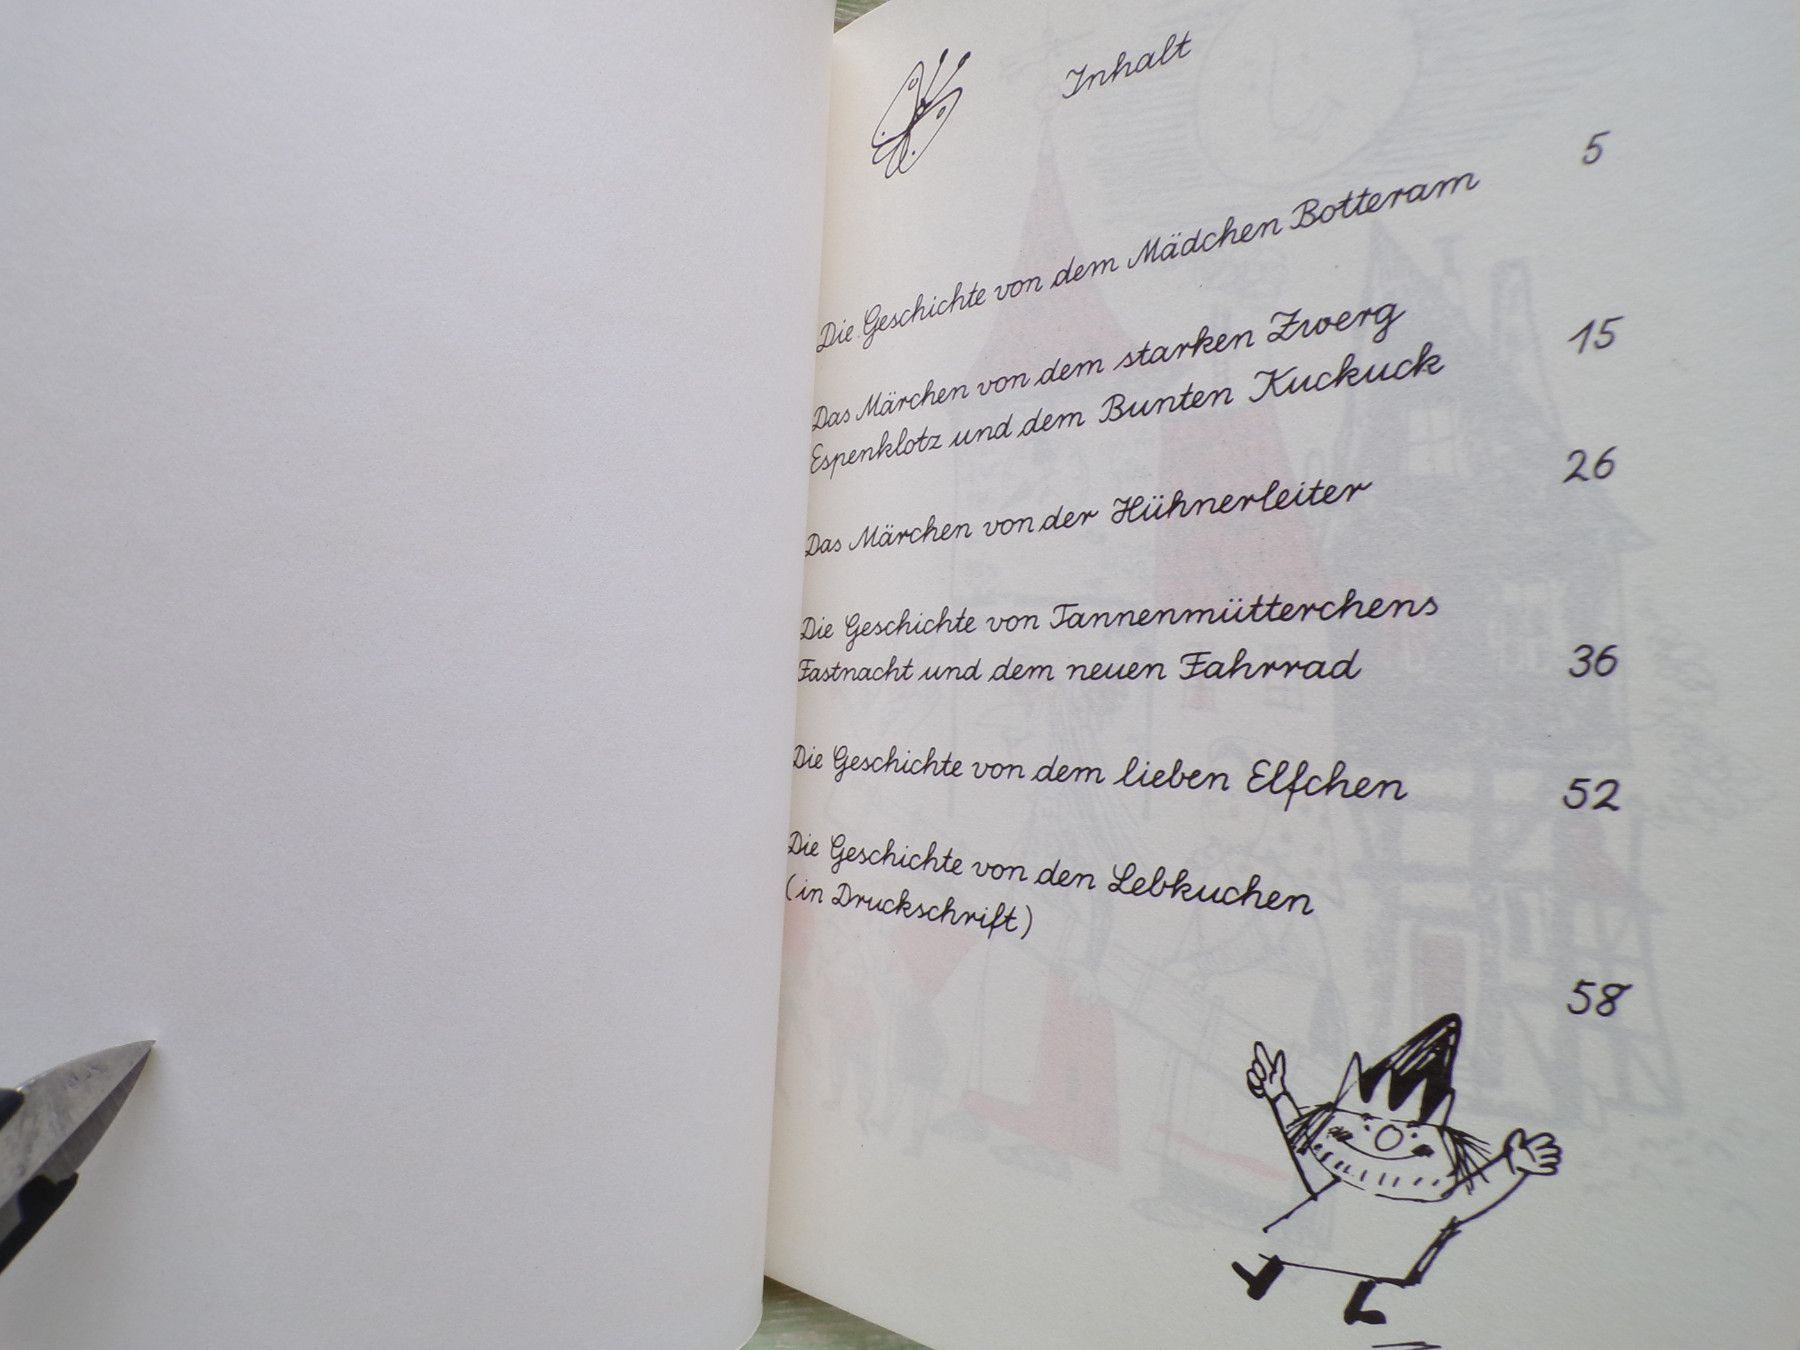 Inhalt
Die Geschichte von dem Mädchen Botteram 5
Das Märchen von dem starken Zwerg
Espenklotz und dem Bunten Kuckuck 15
Das Märchen von der Hühnerleiter 26
Die Geschichte von Tannenmütterchens
Fastnacht und dem neuen Fahrrad 36
Die Geschichte von dem lieben Elfchen 52
Die Geschichte von den Lebkuchen
(in Druckschrift) 58